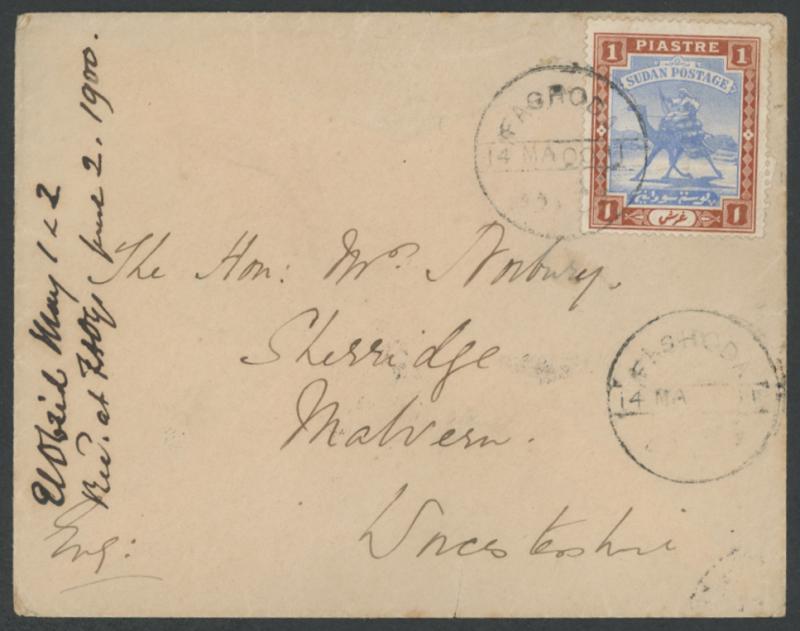 1 PIASTRE 1
SUDAN POSTAGE
بوستة سودانية
1 غرش 1
FASHODA
14 MA 00
The Hon: Mrs. Norbury,
Sherridge
Malvern.
Worcestershire
Eng:
FASHODA
14 MA
El Obeid May 1 & 2
Rec. at June 2. 1900.